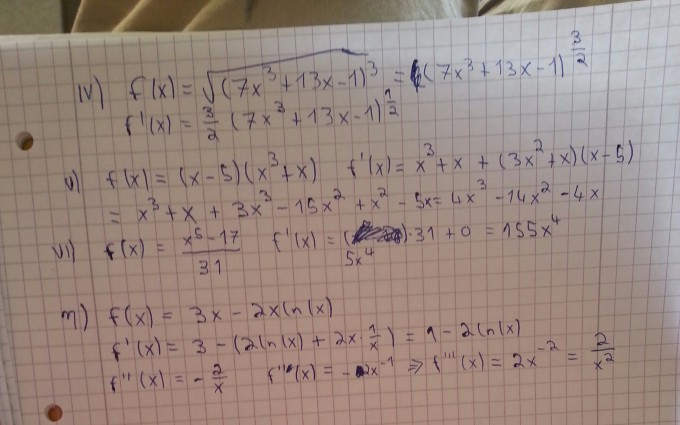 iv) f(x) = √(7x³+13x-1)³ = (7x³+13x-1)^(3/2)
f'(x) = 3/2 (7x³+13x-1)^(1/2)
v) f(x) = (x-5)(x³+x) f'(x) = x³+x + (3x²+x)(x-5)
= x³+x + 3x³-15x²+x²-5x = 4x³-14x²-4x
vi) f(x) = (x⁵-17)/31 f'(x) = (5x⁴)·31+0 = 155x⁴
m) f(x) = 3x-2xln(x)
f'(x) = 3-(2ln(x)+2x·1/x) = 1-2ln(x)
f''(x) = -2/x f''(x) = -2x⁻¹ ⇒ f'''(x) = 2x⁻² = 2/x²